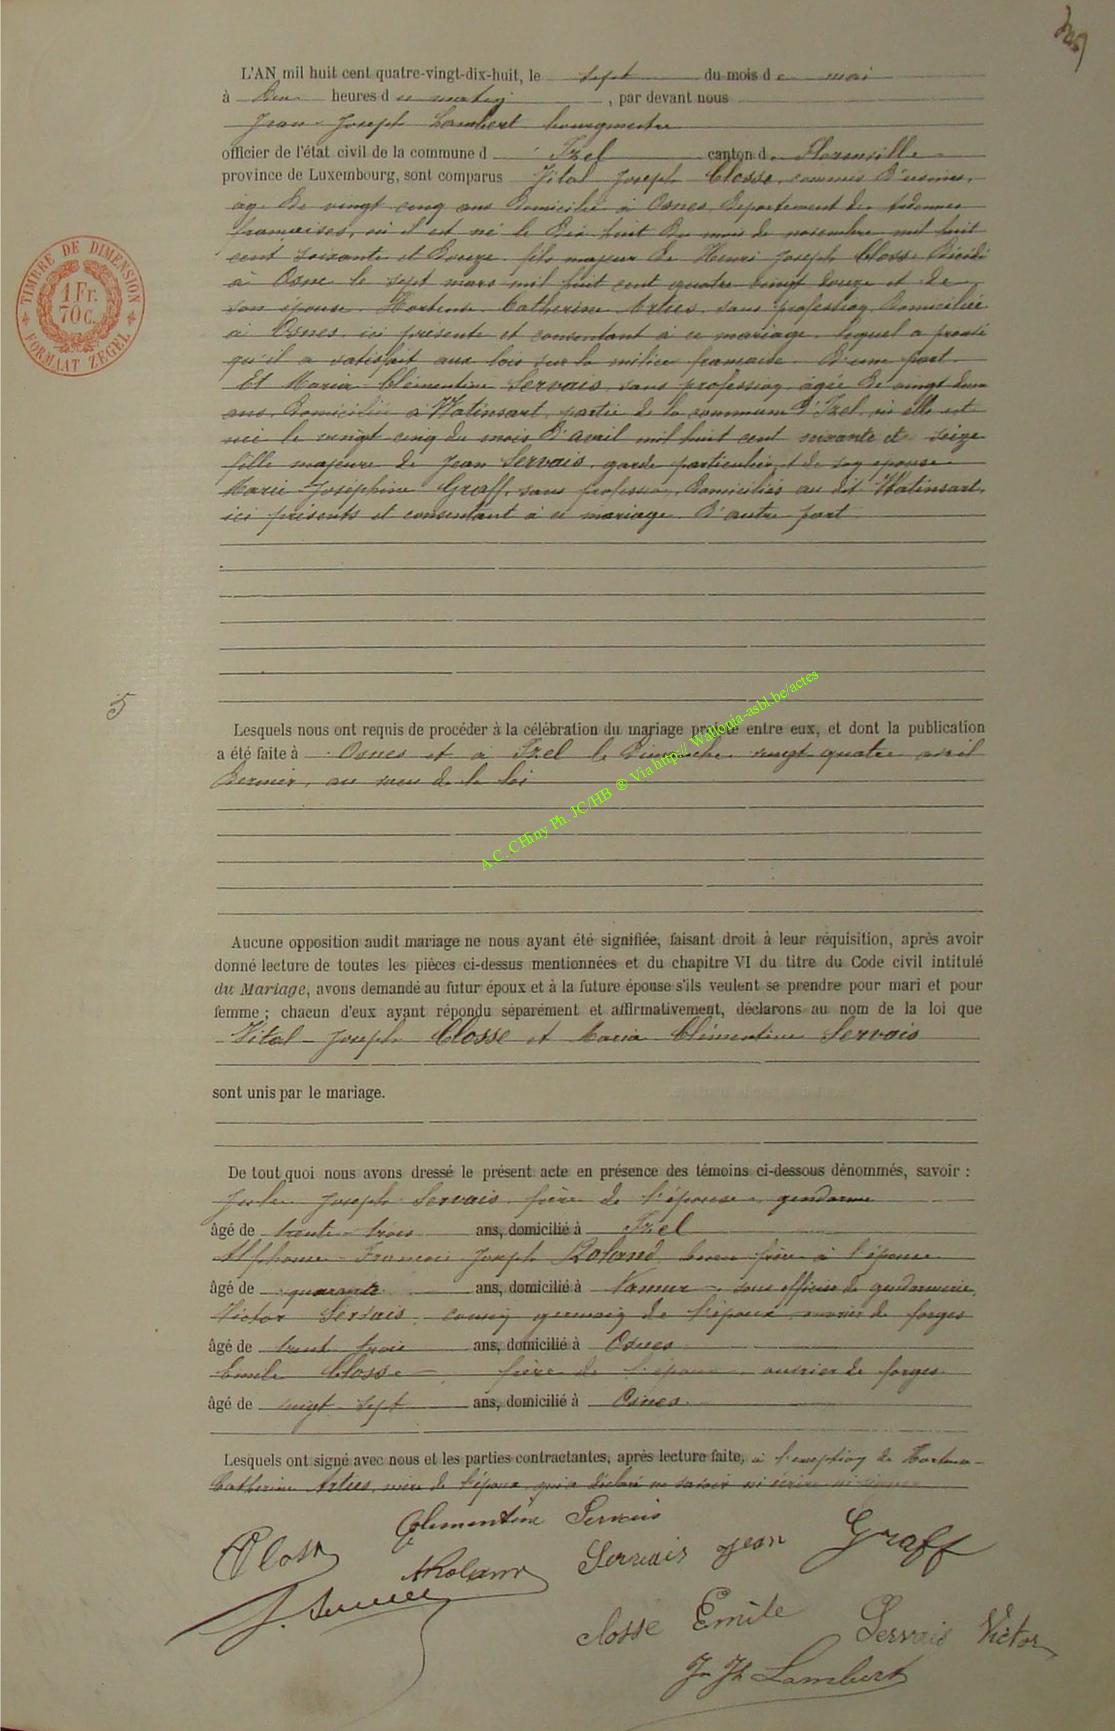 L'AN mil huit cent quatre-vingt-dix-huit, le sept du mois de mai
à heures du matin, par devant nous
Jean-Joseph Lambert bourgmestre
officier de l'état civil de la commune d'Izel canton de Florenville
province de Luxembourg, sont comparus Vital Joseph Closse, commis d'usines,
âgé de vingt cinq ans domicilié à Osnes, département des Ardennes
françaises, où il est né le dix huit du mois de novembre mil huit
cent soixante et douze, fils majeur de Henri Joseph Closse décédé
à Osne le sept mars mil huit cent quatre vingt douze et de
son épouse Hortense Catherine Arties, sans profession, domiciliée
à Osnes, ici présente et consentant à ce mariage, lequel a prouvé
qu'il a satisfait aux lois sur la milice française. D'une part
Et Maria Clémentine Servais, sans profession, âgée de vingt deux
ans, domiciliée à Watinsart, partie de la commune d'Izel, où elle est
née le vingt cinq du mois d'avril mil huit cent soixante et seize
fille majeure de Jean Servais, garde particulier et de son épouse
Marie Joséphine Graff, sans profession, domiciliés au dit Watinsart,
ici présents et consentant à ce mariage. D'autre part
5
Lesquels nous ont requis de procéder à la célébration du mariage projeté entre eux, et dont la publication
a été faite à Osnes et à Izel le Dimanche vingt quatre avril
dernier, au vœu de la loi
Aucune opposition audit mariage ne nous ayant été signifiée, faisant droit à leur réquisition, après avoir
donné lecture de toutes les pièces ci-dessus mentionnées et du chapitre VI du titre du Code civil intitulé
du Mariage, avons demandé au futur époux et à la future épouse s'ils veulent se prendre pour mari et pour
femme ; chacun d'eux ayant répondu séparément et affirmativement, déclarons au nom de la loi que
Vital Joseph Closse et Maria Clémentine Servais
sont unis par le mariage.
De tout quoi nous avons dressé le présent acte en présence des témoins ci-dessous dénommés, savoir :
Jules Joseph Servais, frère de l'épouse, gendarme
âgé de trente-trois ans, domicilié à Izel
Alphonse François Joseph Roland, beau frère à l'épouse
âgé de quarante ans, domicilié à Namur, sous officier de gendarmerie,
Victor Servais, cousin germain de l'époux, ouvrier de forges
âgé de trente trois ans, domicilié à Osnes
Emile Closse frère de l'époux, ouvrier de forges
âgé de vingt-sept ans, domicilié à Osnes
Lesquels ont signé avec nous et les parties contractantes, après lecture faite, à l'exception de Hortense
Catherine Arties, mère de l'époux, qui a déclaré ne savoir ni écrire ni signer
Closse
Clementine Servais
ARoland
Servais Jean
Graff
J. Servais
Closse Emile
Servais Victor
Jn Jh Lambert
TIMBRE DE DIMENSION
1 Fr.
70 c.
FORMAAT ZEGEL
A.C. CHiny Ph. JC/HB ® Via http:// Wallonia-asbl.be/actes